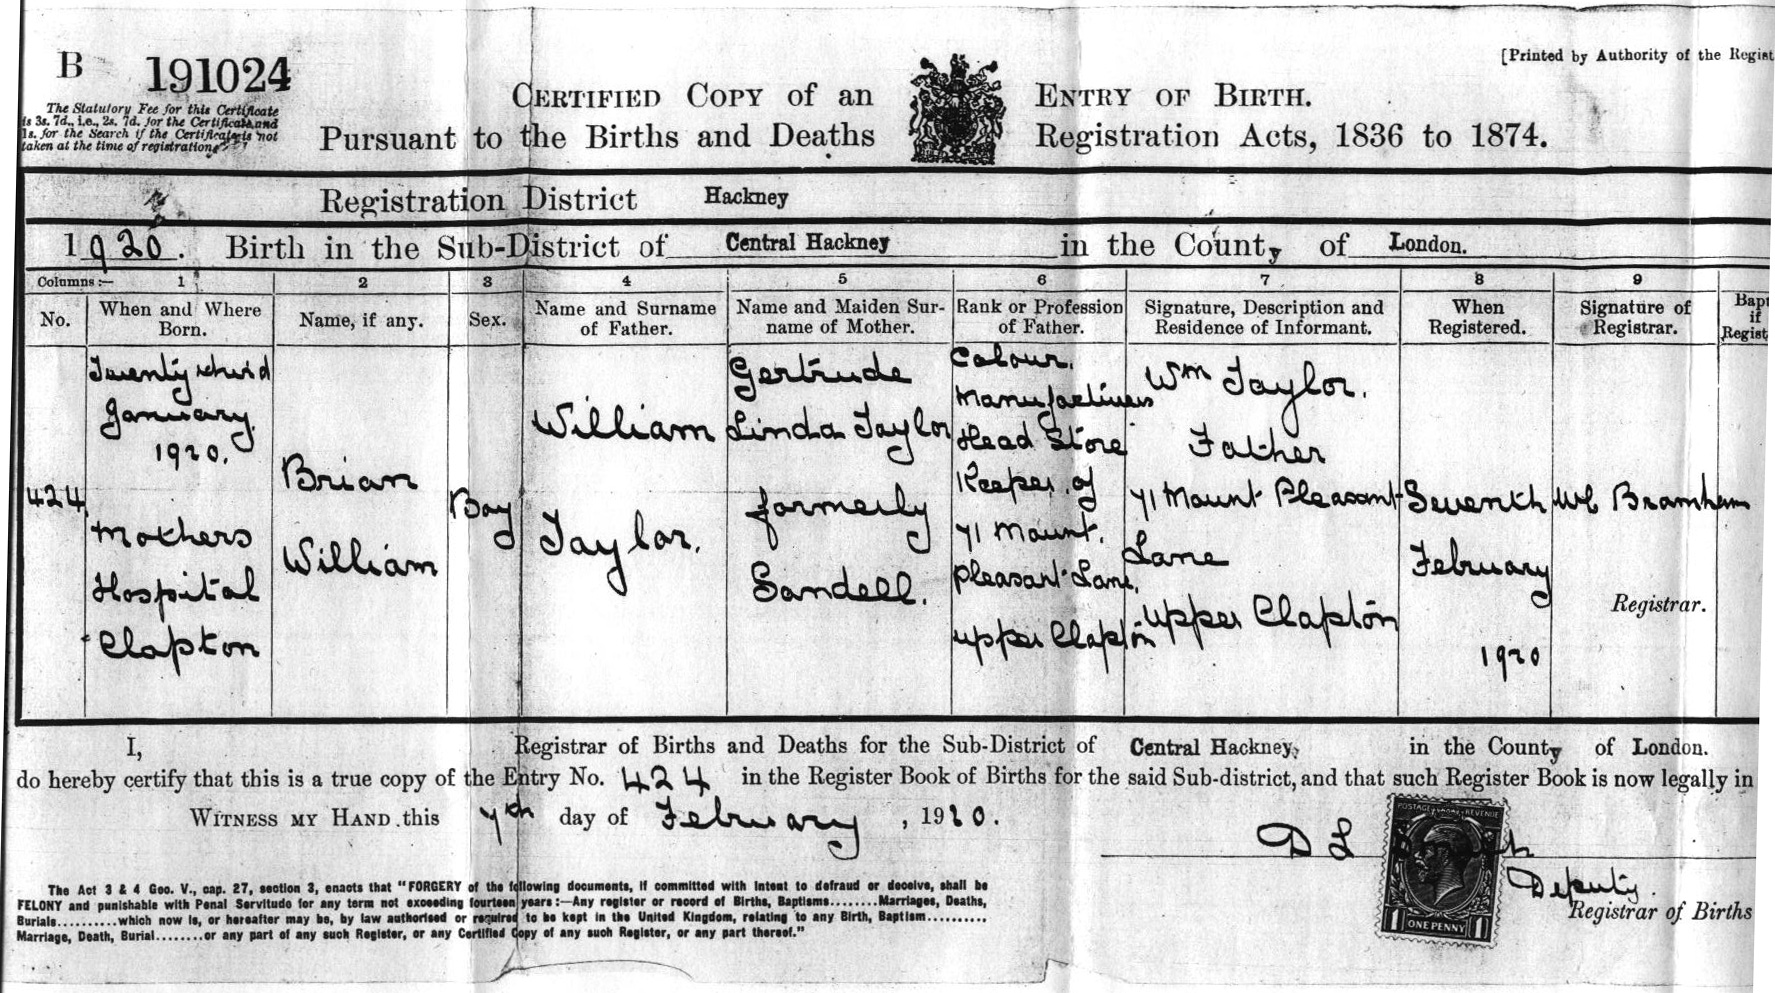 [Printed by Authority of the Regist
B 191024
The Statutory Fee for this Certificate
is 3s. 7d., i.e., 2s. 7d. for the Certificate and
1s. for the Search if the Certificate is not
taken at the time of registration.
CERTIFIED COPY of an ENTRY OF BIRTH.
Pursuant to the Births and Deaths Registration Acts, 1836 to 1874.
Registration District Hackney
1920. Birth in the Sub-District of Central Hackney in the County of London.
Columns:— 1 2 3 4 5 6 7 8 9
No.
When and Where
Born.
Name, if any.
Sex.
Name and Surname
of Father.
Name and Maiden Sur-
name of Mother.
Rank or Profession
of Father.
Signature, Description and
Residence of Informant.
When
Registered.
Signature of
Registrar.
Bapt
if
Regist
424
Twenty third
January.
1920.
Mothers
Hospital
Clapton
Brian
William
Boy
William
Taylor.
Gertrude
Linda Taylor
formerly
Sandell.
Colour.
Manufacturers
Head Store
Keeper of
71 Mount.
Pleasant Lane.
Upper Clapton
Wm Taylor.
Father
71 Mount Pleasant
Lane
Upper Clapton
Seventh
February
1920
Bramham
Registrar.
I, Registrar of Births and Deaths for the Sub-District of Central Hackney, in the County of London.
do hereby certify that this is a true copy of the Entry No. 424 in the Register Book of Births for the said Sub-district, and that such Register Book is now legally in
WITNESS MY HAND this 7th day of February, 1920.
D L
Deputy.
Registrar of Births
POSTAGE REVENUE
1 ONE PENNY 1
The Act 3 & 4 Geo. V., cap. 27, section 3, enacts that "FORGERY of the following documents, if committed with intent to defraud or deceive, shall be
FELONY and punishable with Penal Servitude for any term not exceeding fourteen years:—Any register or record of Births, Baptisms........Marriages, Deaths,
Burials..........which now is, or hereafter may be, by law authorised or required to be kept in the United Kingdom, relating to any Birth, Baptism..........
Marriage, Death, Burial........or any part of any such Register, or any Certified Copy of any such Register, or any part thereof."